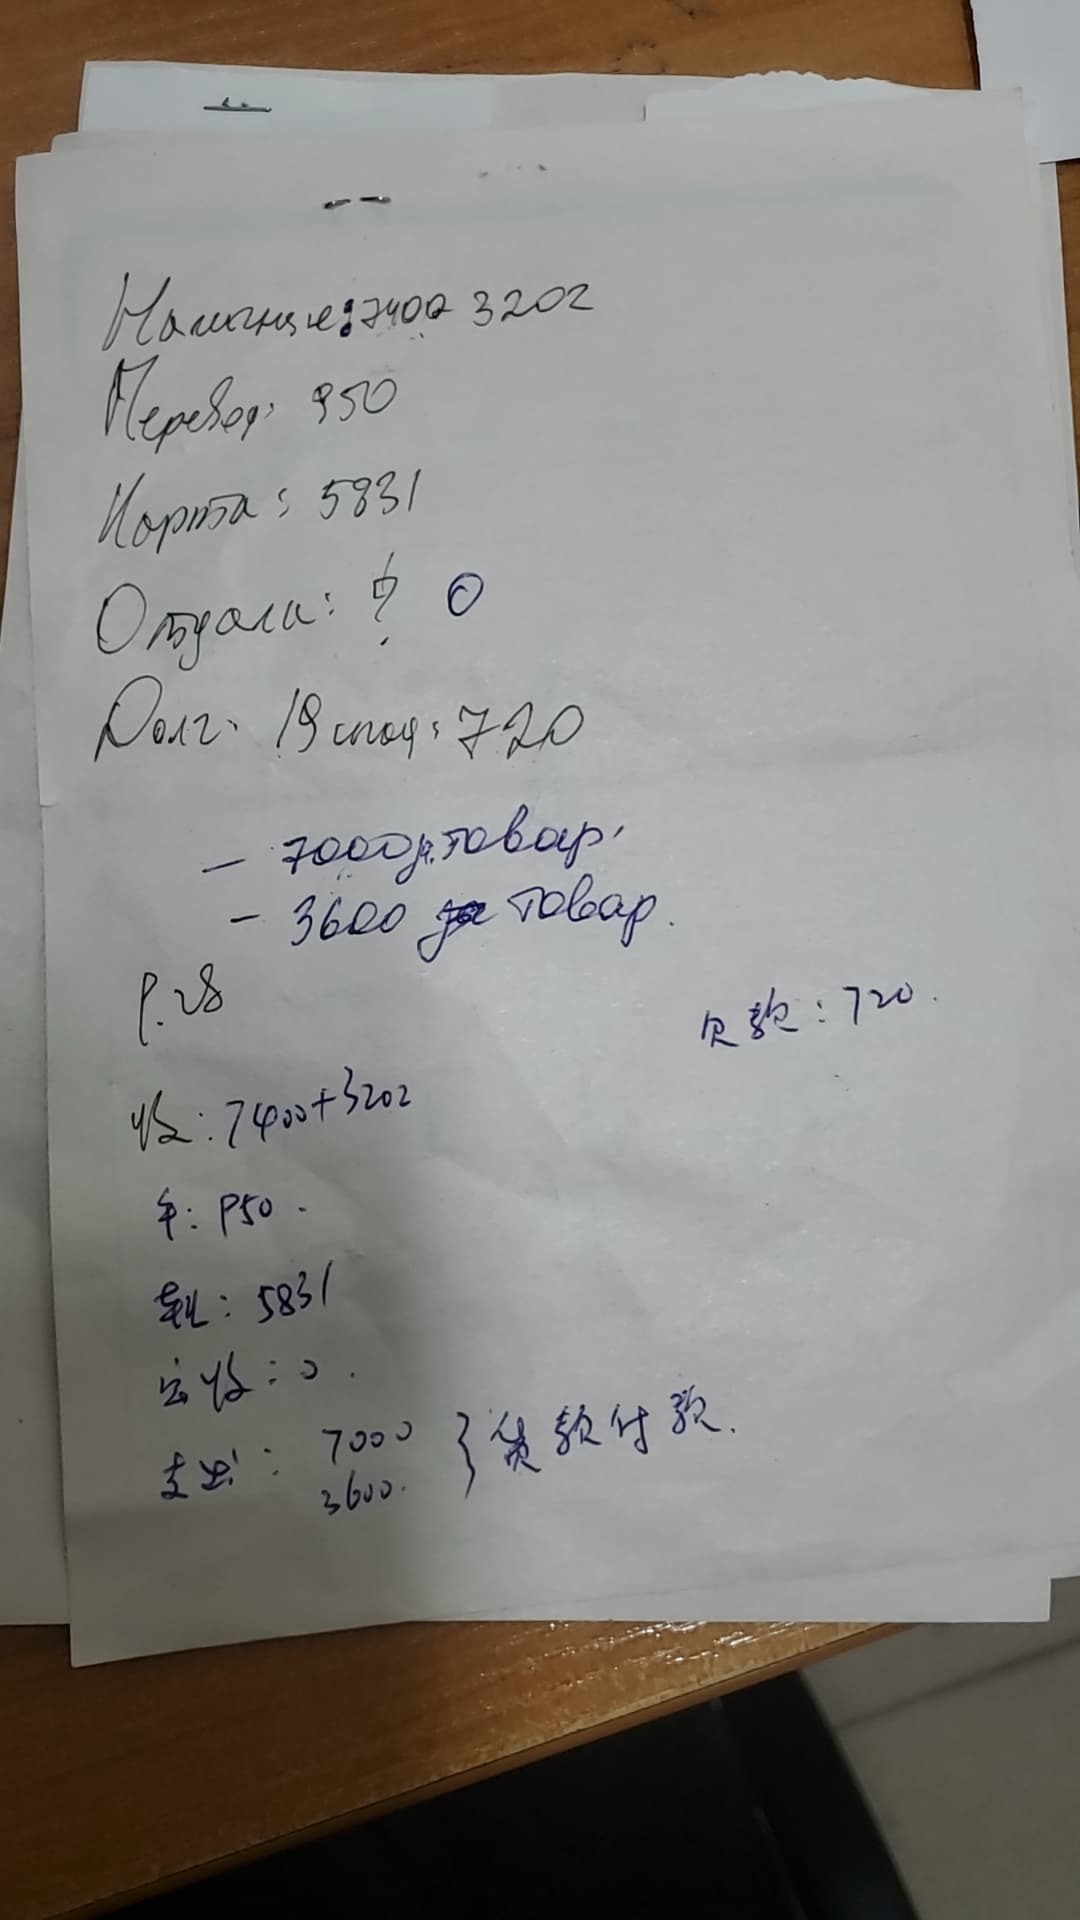 Наличные: 7400 3202
Перевод: 950
Карта: 5831
Отдала: ? 0
Долг: 19 стол: 720
- 7000 за товар.
- 3600 за товар.
9.28
欠款: 720.
收: 7400+3202
卡: 950.
转: 5831
应收: 0.
支出: 7000
3600. } 货款付款.